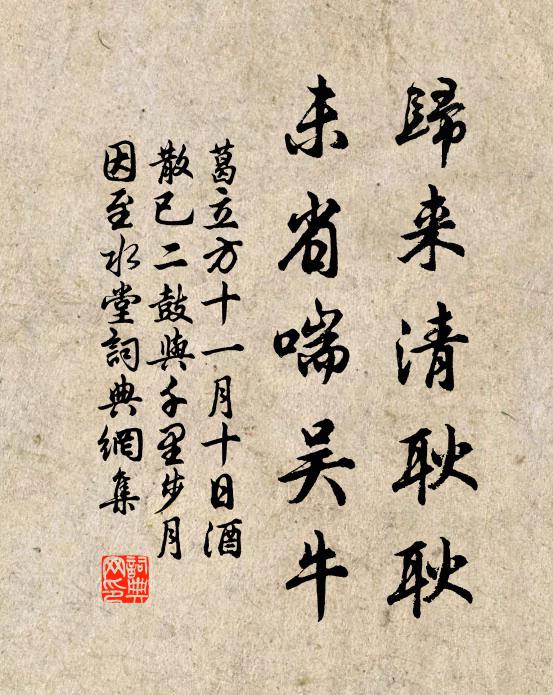 歸来清耿耿
未省喘吴牛
葛立方十一月十日酒
散已二鼓與千里步月
因至水堂詞典網集
詞典网印